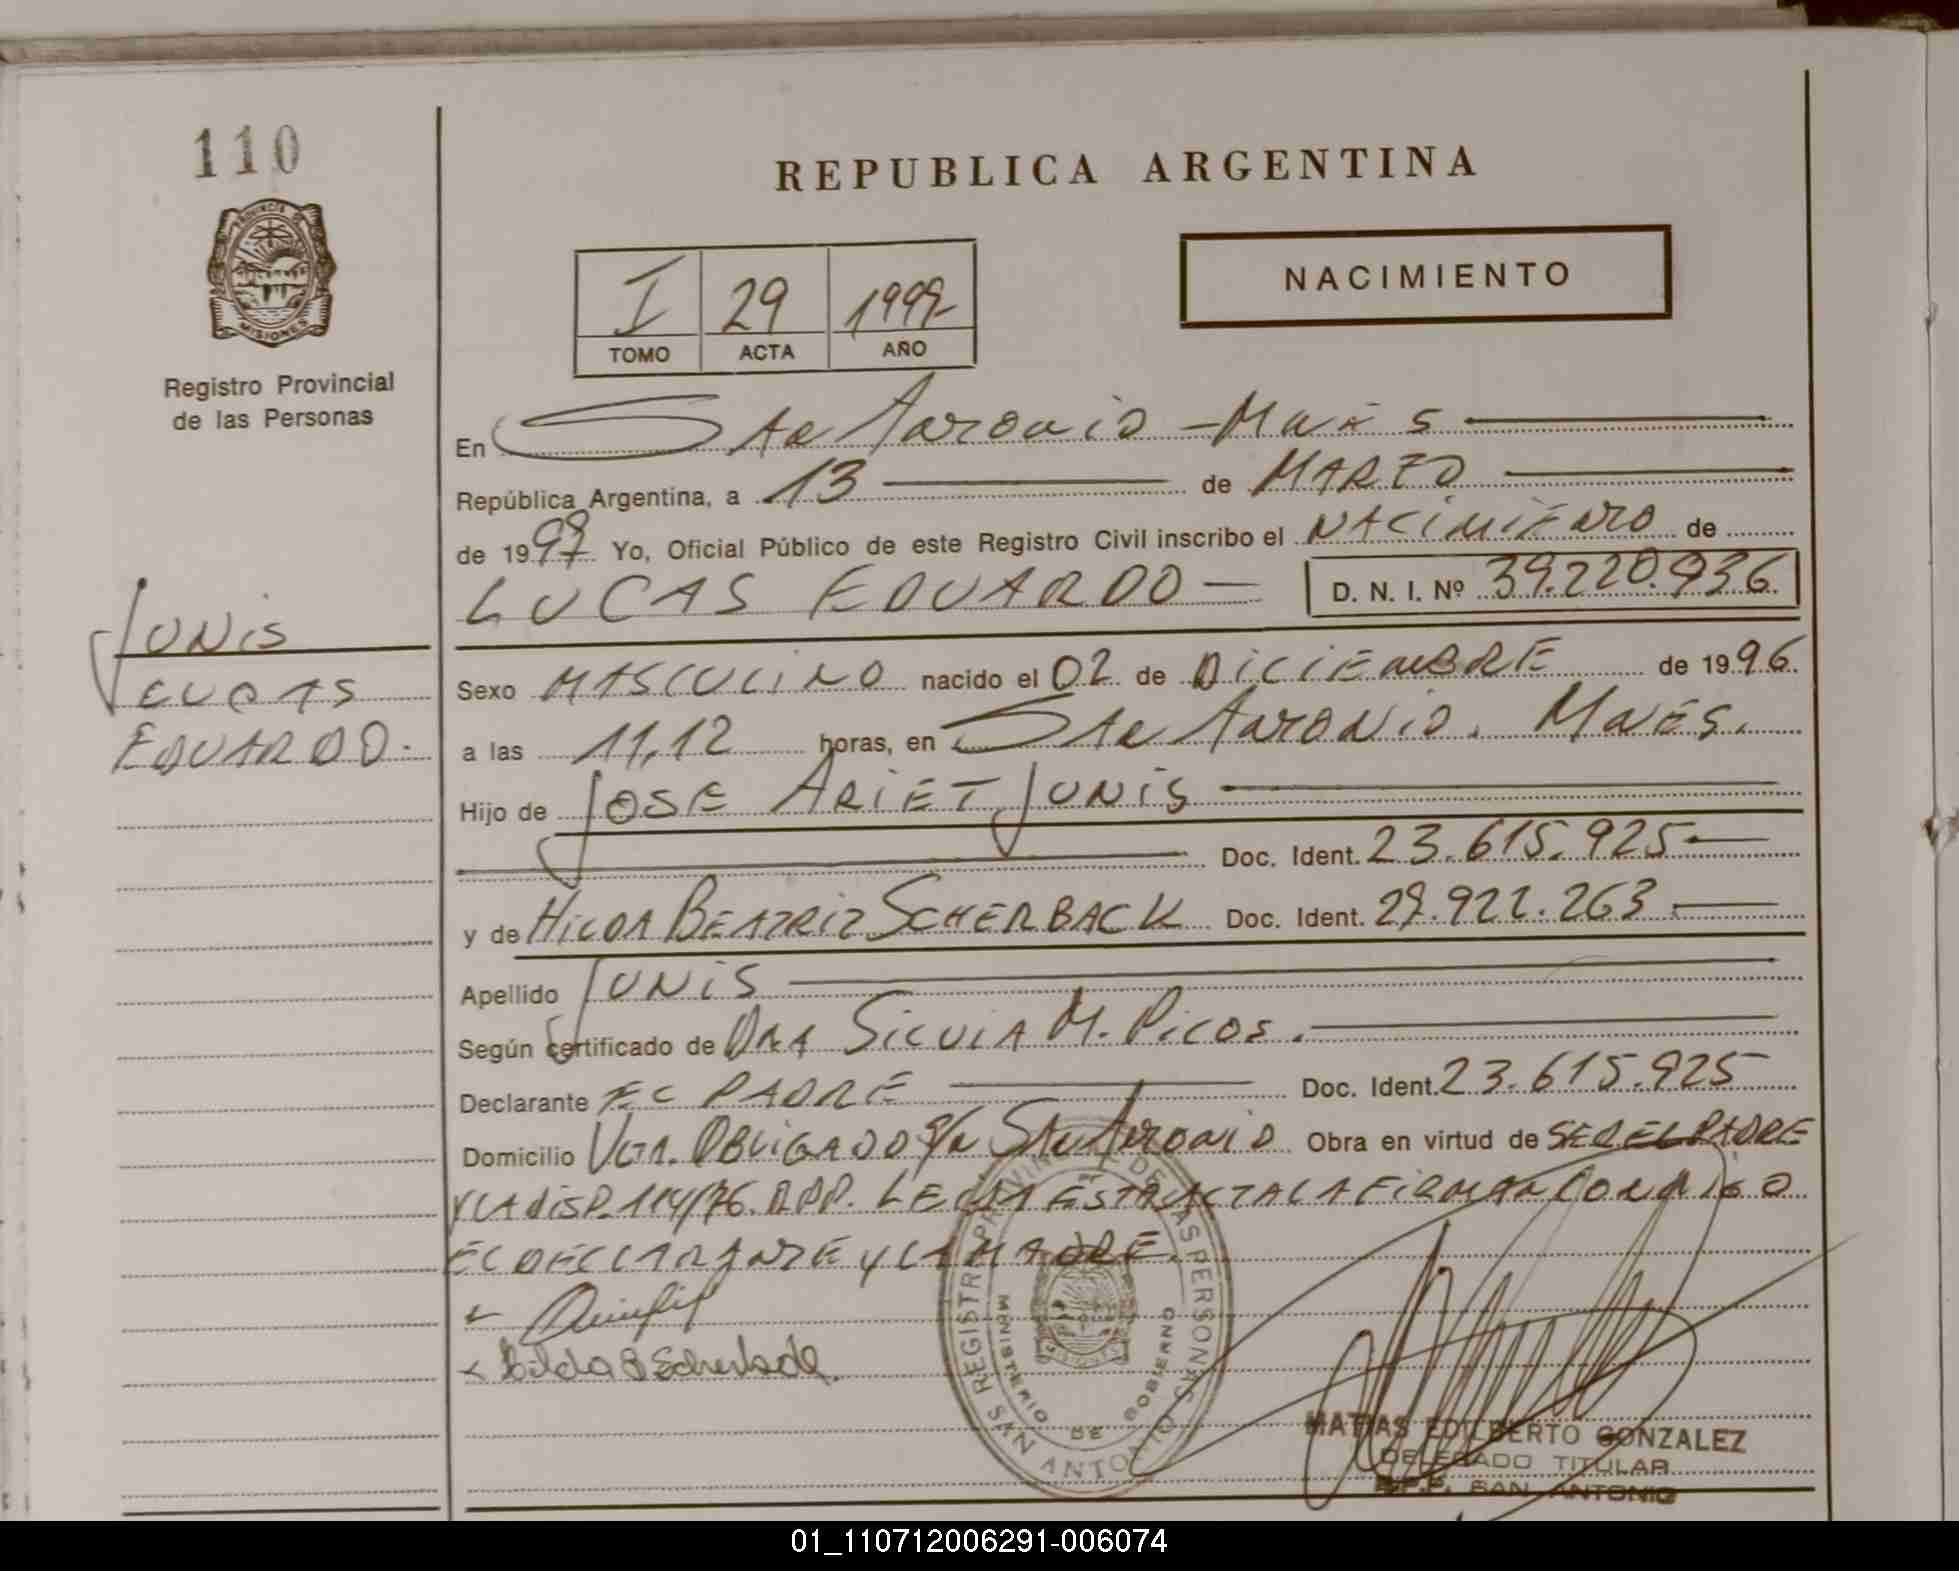 110
PROVINCIA DE
MISIONES
Registro Provincial
de las Personas
REPUBLICA ARGENTINA
NACIMIENTO
I 29 1997
TOMO ACTA AÑO
En San Antonio - Mnes
República Argentina, a 13 de MARZO
de 1997 Yo, Oficial Público de este Registro Civil inscribo el NACIMIENTO de
LUCAS EDUARDO D. N. I. Nº 39.220.936.
JUNIS
LUCAS
EDUARDO.
Sexo MASCULINO nacido el 02 de DICIEMBRE de 1996.
a las 11,12 horas, en San ANTONIO. MNES.
Hijo de JOSE ARIET JUNIS
Doc. Ident. 23.615.925
y de HILDA BEATRIZ SCHERBACK Doc. Ident. .263
Apellido JUNIS
Según certificado de DRA SILVIA M. PICOS.
Declarante EL PADRE Doc. Ident. 23.615.925
Domicilio OBLIGADO S/N San Antonio Obra en virtud de SER EL PADRE
Y LA DISP. 114/76. RPP. LEIDA ESTA ACTA LA FIRMAN CONMIGO
EL DECLARANTE Y LA MADRE.
Hilda B Scherback
REGISTRO PROVINCIAL DE LAS PERSONAS
MINISTERIO DE GOBIERNO
SAN ANTONIO
MATIAS EDILBERTO GONZALEZ
DELEGADO TITULAR
R.P.P. SAN ANTONIO
01_110712006291-006074